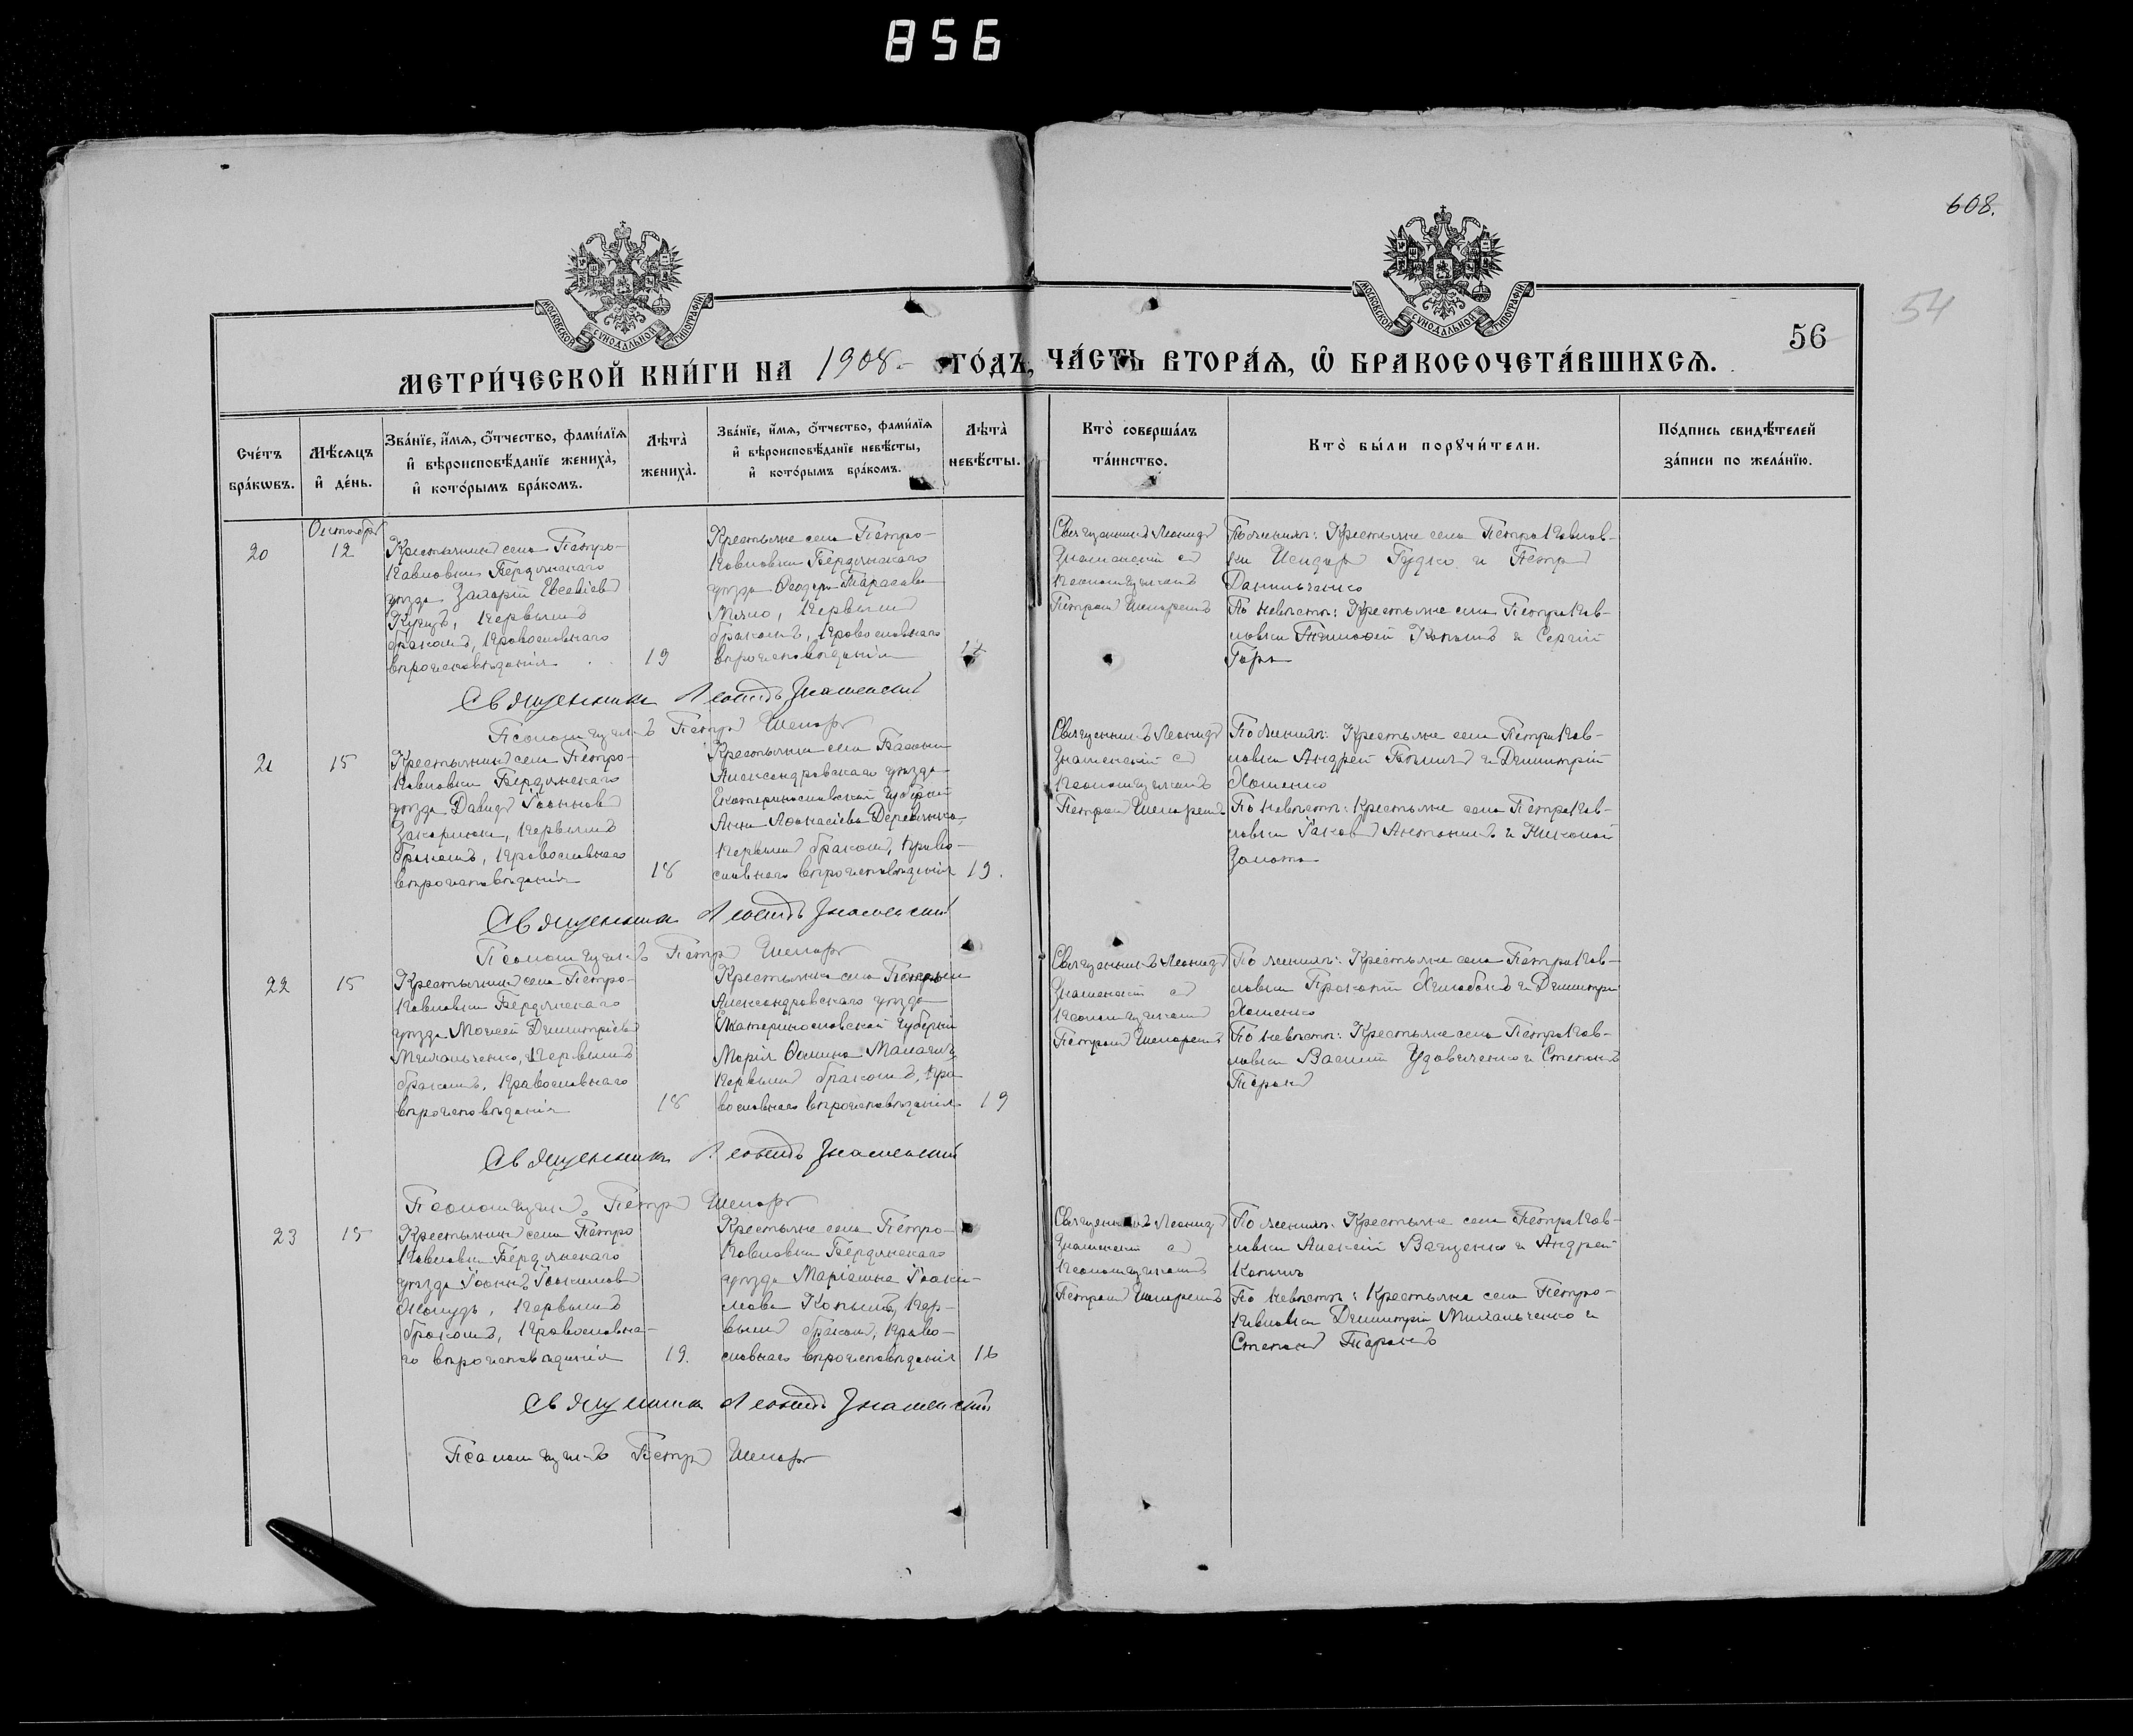 856
608.
54
56
МОСКОВСКОЙ СѴНОДАЛЬНОЙ ТИПОГРАФІИ
МОСКОВСКОЙ СѴНОДАЛЬНОЙ ТИПОГРАФІИ
МЕТРИ́ЧЕСКОЙ КНИ́ГИ НА 1908 ГО́ДЪ, ЧА́СТЬ ВТОРА́Ѧ, Ѽ БРАКОСОЧЕТА́ВШИХСѦ.
Сче́тъ
бра́кѡвъ.
Мѣ́сѧцъ
и҆ де́нь.
Зва́нїе, и҆́мѧ, ѻ҆́тчество, фами́лїѧ
и҆ вѣроисповѣ́данїе жениха̀,
и҆ кото́рымъ бра́комъ.
Лѣта̀
жениха̀.
Зва́нїе, и҆́мѧ, ѻ҆́тчество, фами́лїѧ
и҆ вѣроисповѣ́данїе невѣ́сты,
и҆ кото́рымъ бра́комъ.
Лѣта̀
невѣ́сты.
Кто̀ соверша́лъ
та́инство.
Кто̀ бы́ли порꙋчи́тели.
По́дпись свидѣ́телей
за́писи по жела́нїю.
Октября
20
12
Крестьянинъ села Петро-
павловки Бердянскаго
уѣзда Захарій Евсевіевъ
Куцъ, первымъ
бракомъ, православнаго
вѣроисповѣданія
19
Крестьянка села Петро-
павловки Бердянскаго
уѣзда Ѳеодора Тарасова
первымъ
бракомъ, православнаго
вѣроисповѣданія
Священникъ Леонидъ
Знаменскій съ
псаломщикомъ
Петромъ
По женихѣ: Крестьяне села Петропавлов-
ки Исидоръ Гудко и Петръ
Данильченко
По невѣстѣ: Крестьяне села Петропав-
ловки Тимоѳей Копылъ и Сергій
Священникъ Леонидъ Знаменскій
Псаломщикъ Петръ
21
15
Крестьянинъ села Петро-
павловки Бердянскаго
уѣзда Давидъ Іоанновъ
первымъ
бракомъ, православнаго
вѣроисповѣданія
18
Крестьянка села
Александровскаго уѣзда
Екатеринославской губерніи
Анна Аѳанасіева
первымъ бракомъ, право-
славнаго вѣроисповѣданія
19.
Священникъ Леонидъ
Знаменскій съ
псаломщикомъ
Петромъ
По женихѣ: Крестьяне села Петропав-
ловки Андрей и Димитрій
По невѣстѣ: Крестьяне села Петропав-
ловки Іаковъ и Николай
Священникъ Леонидъ Знаменскій
Псаломщикъ Петръ
22
15
Крестьянинъ села Петро-
павловки Бердянскаго
уѣзда Моисей Димитріевъ
Михальченко, первымъ
бракомъ, православнаго
вѣроисповѣданія
18
Крестьянка села
Александровскаго уѣзда
Екатеринославской губерніи
Марія Ѳомина
первымъ бракомъ, пра-
вославнаго вѣроисповѣданія
19
Священникъ Леонидъ
Знаменскій съ
псаломщикомъ
Петромъ
По женихѣ: Крестьяне села Петропав-
ловки и Димитрій
По невѣстѣ: Крестьяне села Петропав-
ловки Василій Удовиченко и Степанъ
Таранъ
Священникъ Леонидъ Знаменскій
Псаломщикъ Петръ
23
15
Крестьянинъ села Петро
павловки Бердянскаго
уѣзда Іоаннъ Іоакимовъ
первымъ
бракомъ, православна-
го вѣроисповѣданія
19.
Крестьянка села Петро-
павловки Бердянскаго
уѣзда Маріанна Іоаки-
мова Копылъ, пер-
вымъ бракомъ, право-
славнаго вѣроисповѣданія
16
Священникъ Леонидъ
Знаменскій съ
псаломщикомъ
Петромъ
По женихѣ: Крестьяне села Петропав-
ловки Алексій Ващенко и Андрей
Копылъ
По невѣстѣ: Крестьяне села Петро-
павловки Димитрій Михальченко и
Степанъ Таранъ
Священникъ Леонидъ Знаменскій
Псаломщикъ Петръ